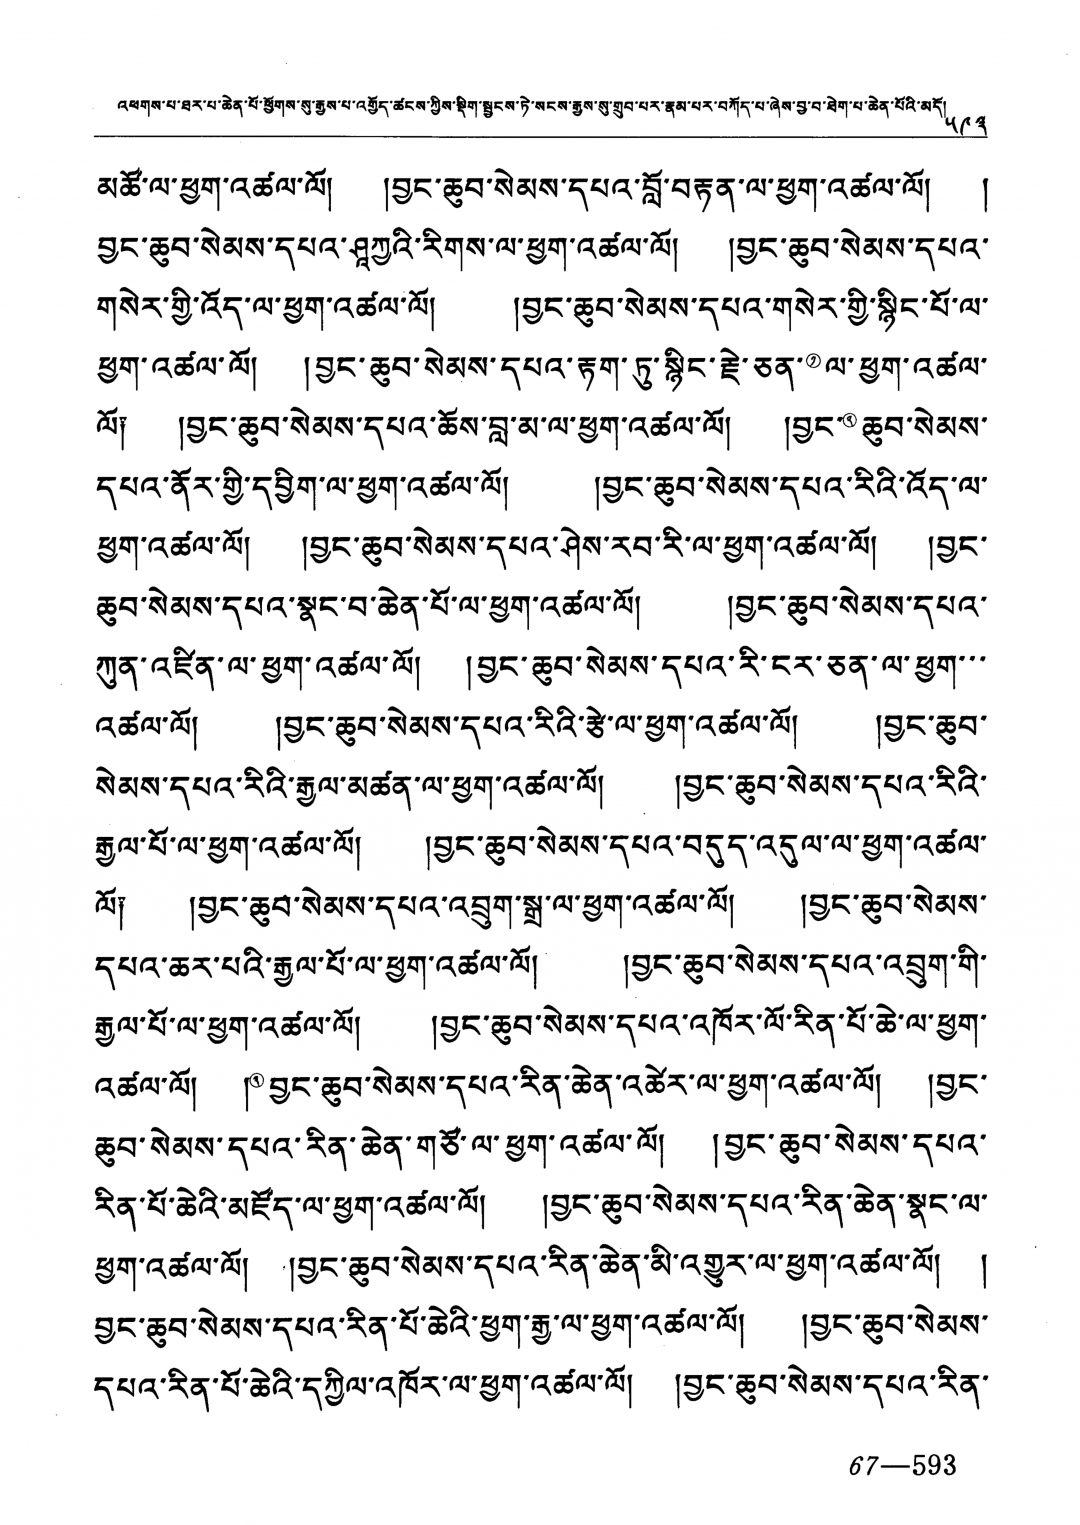 འཕགས་པ་ཐར་པ་ཆེན་པོ་ཕྱོགས་སུ་རྒྱས་པ་འགྱོད་ཚངས་ཀྱིས་སྡིག་སྦྱངས་ཏེ་སངས་རྒྱས་སུ་གྲུབ་པར་རྣམ་པར་བཀོད་པ་ཞེས་བྱ་བ་ཐེག་པ་ཆེན་པོའི་མདོ།
༥༩༣
མཚོ་ལ་ཕྱག་འཚལ་ལོ། །བྱང་ཆུབ་སེམས་དཔའ་བློ་བརྟན་ལ་ཕྱག་འཚལ་ལོ། །
བྱང་ཆུབ་སེམས་དཔའ་ཤཱཀྱའི་རིགས་ལ་ཕྱག་འཚལ་ལོ། །བྱང་ཆུབ་སེམས་དཔའ་
གསེར་གྱི་འོད་ལ་ཕྱག་འཚལ་ལོ། །བྱང་ཆུབ་སེམས་དཔའ་གསེར་གྱི་སྙིང་པོ་ལ་
ཕྱག་འཚལ་ལོ། །བྱང་ཆུབ་སེམས་དཔའ་རྟག་ཏུ་སྙིང་རྗེ་ཅན་①ལ་ཕྱག་འཚལ་
ལོ། །བྱང་ཆུབ་སེམས་དཔའ་ཆོས་བླ་མ་ལ་ཕྱག་འཚལ་ལོ། །བྱང་ ཆུབ་སེམས་
དཔའ་ནོར་གྱི་དབྱིག་ལ་ཕྱག་འཚལ་ལོ། །བྱང་ཆུབ་སེམས་དཔའ་རིའི་འོད་ལ་
ཕྱག་འཚལ་ལོ། །བྱང་ཆུབ་སེམས་དཔའ་ཤེས་རབ་རི་ལ་ཕྱག་འཚལ་ལོ། །བྱང་
ཆུབ་སེམས་དཔའ་སྣང་བ་ཆེན་པོ་ལ་ཕྱག་འཚལ་ལོ། །བྱང་ཆུབ་སེམས་དཔའ་
ཀུན་འཛིན་ལ་ཕྱག་འཚལ་ལོ། །བྱང་ཆུབ་སེམས་དཔའ་རི་ངར་ཅན་ལ་ཕྱག་··
འཚལ་ལོ། །བྱང་ཆུབ་སེམས་དཔའ་རིའི་རྩེ་ལ་ཕྱག་འཚལ་ལོ། །བྱང་ཆུབ་
སེམས་དཔའ་རིའི་རྒྱལ་མཚན་ལ་ཕྱག་འཚལ་ལོ། །བྱང་ཆུབ་སེམས་དཔའ་རིའི་
རྒྱལ་པོ་ལ་ཕྱག་འཚལ་ལོ། །བྱང་ཆུབ་སེམས་དཔའ་བདུད་འདུལ་ལ་ཕྱག་འཚལ་
ལོ། །བྱང་ཆུབ་སེམས་དཔའ་འབྲུག་སྒྲ་ལ་ཕྱག་འཚལ་ལོ། །བྱང་ཆུབ་སེམས་
དཔའ་ཆར་པའི་རྒྱལ་པོ་ལ་ཕྱག་འཚལ་ལོ། །བྱང་ཆུབ་སེམས་དཔའ་འབྲུག་གི་
རྒྱལ་པོ་ལ་ཕྱག་འཚལ་ལོ། །བྱང་ཆུབ་སེམས་དཔའ་འཁོར་ལོ་རིན་པོ་ཆེ་ལ་ཕྱག་
འཚལ་ལོ། །བྱང་ཆུབ་སེམས་དཔའ་རིན་ཆེན་འཚེར་ལ་ཕྱག་འཚལ་ལོ། །བྱང་
ཆུབ་སེམས་དཔའ་རིན་ཆེན་གཙོ་ལ་ཕྱག་འཚལ་ལོ། །བྱང་ཆུབ་སེམས་དཔའ་
རིན་པོ་ཆེའི་མཛོད་ལ་ཕྱག་འཚལ་ལོ། །བྱང་ཆུབ་སེམས་དཔའ་རིན་ཆེན་སྣང་ལ་
ཕྱག་འཚལ་ལོ། །བྱང་ཆུབ་སེམས་དཔའ་རིན་ཆེན་མི་འགྱུར་ལ་ཕྱག་འཚལ་ལོ། །
བྱང་ཆུབ་སེམས་དཔའ་རིན་པོ་ཆེའི་ཕྱག་རྒྱ་ལ་ཕྱག་འཚལ་ལོ། །བྱང་ཆུབ་སེམས་
དཔའ་རིན་པོ་ཆེའི་དཀྱིལ་འཁོར་ལ་ཕྱག་འཚལ་ལོ། །བྱང་ཆུབ་སེམས་དཔའ་རིན་
67—593